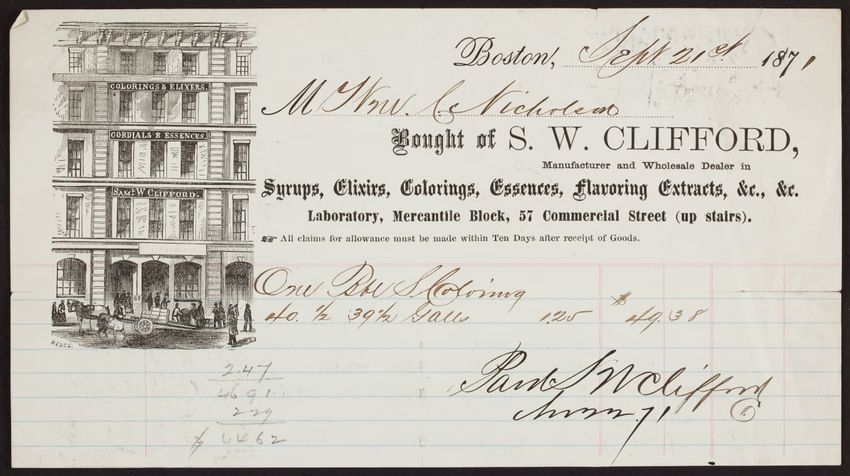 Boston, Sept. 21st 1871
M Wm. C. Nicholson
Bought of S. W. CLIFFORD,
Manufacturer and Wholesale Dealer in
Syrups, Elixirs, Colorings, Essences, Flavoring Extracts, &c., &c.
Laboratory, Mercantile Block, 57 Commercial Street (up stairs).
☞ All claims for allowance must be made within Ten Days after receipt of Goods.
COLORINGS & ELIXERS.
CORDIALS & ESSENCES.
SAML. W. CLIFFORD.
57
One Bbl S Coloring
40. ½ 39½ Galls 1.25 $ 49.38
2.47
46 91
2 29
$ 44 62
Paid S W Clifford
71